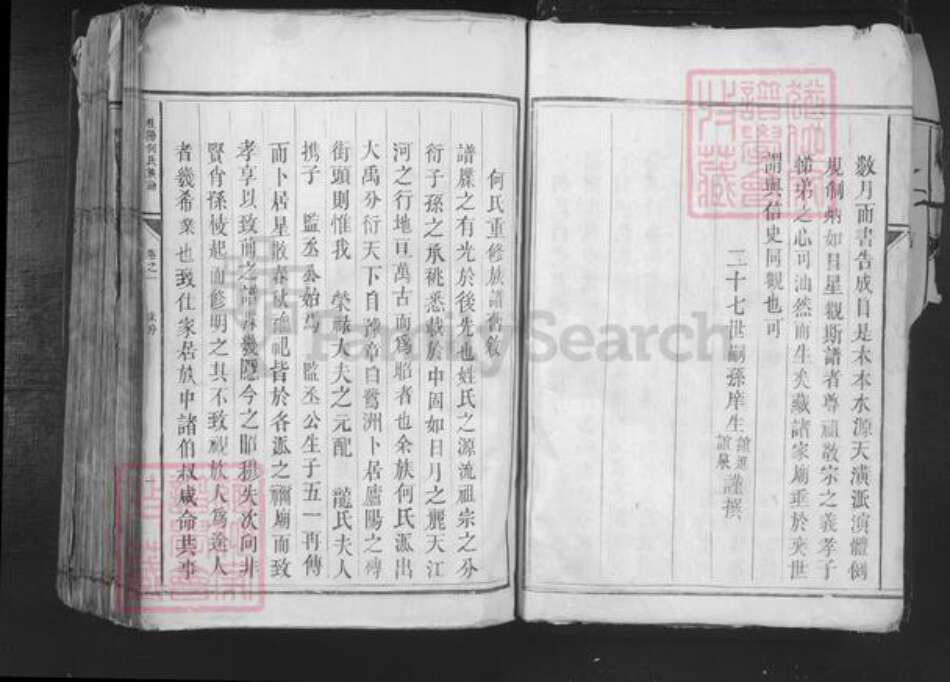 數月而書告成目是木本水源天潢派演體例
規制炳如日星觀斯譜者尊祖敬宗之義孝子
悌弟之心可油然而生矣藏諸家廟垂於奕世
謂與信史同觀也可
二十七世嗣孫庠生 謹撰
何氏重修族譜舊敘
譜牒之有光於後先也姓氏之源流祖宗之分
衍子孫之承祧悉載於中固如日月之麗天江
河之行地亘萬古而爲昭者也余族何氏派出
大禹分衍天下自豫章白鷺洲卜居廬陽之磚
街頭則惟我 榮祿大夫之元配 龍氏夫人
携子 監丞公始焉 監丞公生子五一再傳
而卜居星散春秋禋祀皆於各派之禰廟而致
孝享以致前之譜牒幾隱今之昭穆失次向非
賢肖孫倰起而修明之其不致視族人爲途人
者幾希業也致仕家居族中諸伯叔咸命其事
何氏族譜
卷之一
FamilySearch